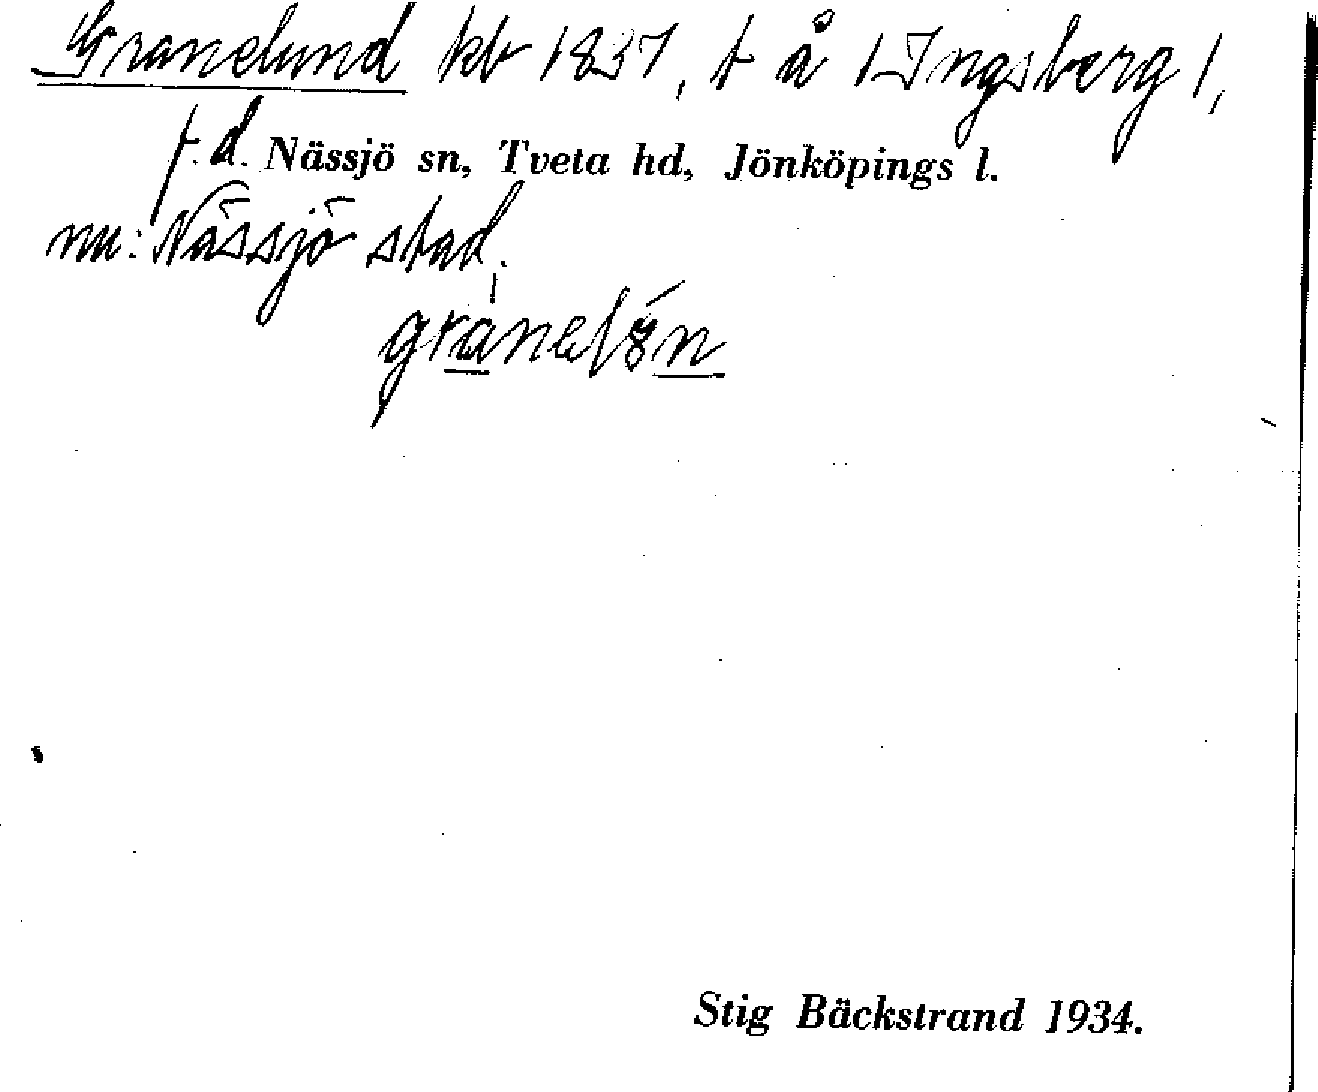 Granelund kb 1837, t å 1 Ingsberg 1,
f. d. Nässjö sn, Tveta hd, Jönköpings l.
nu: Nässjö stad,
Stig Bäckstrand 1934.